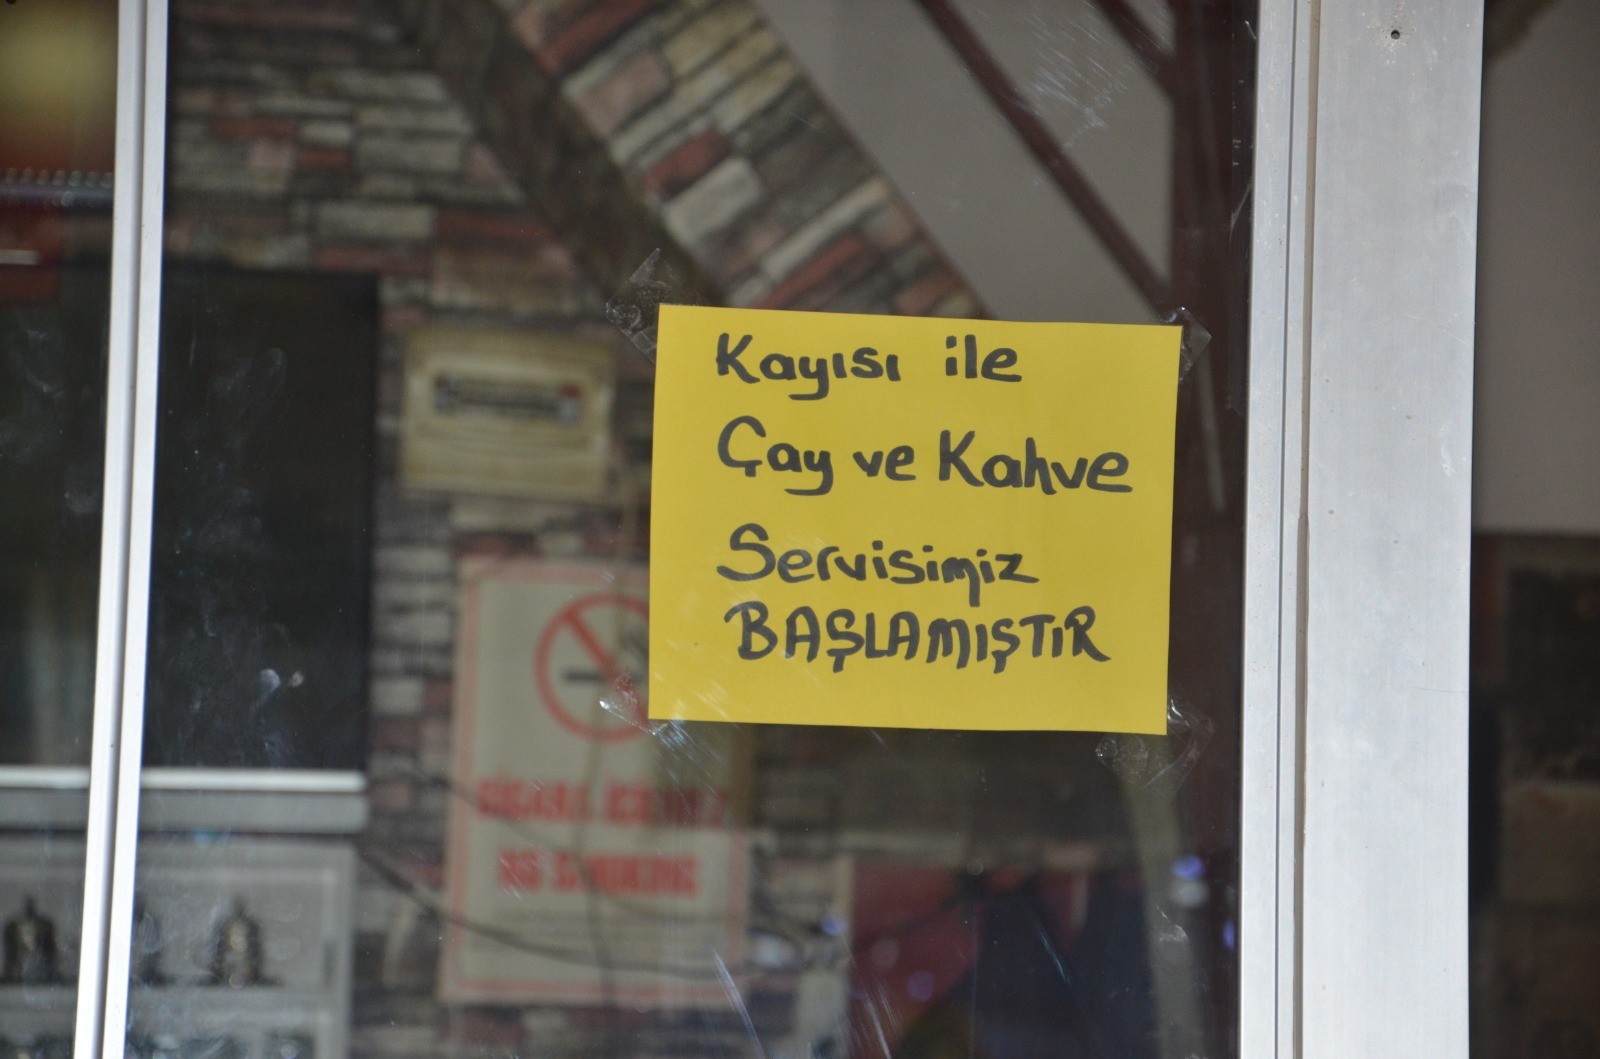 Kayısı ile
Çay ve Kahve
Servisimiz
BAŞLAMIŞTIR
SİGARA İÇİLMEZ
NO SMOKING